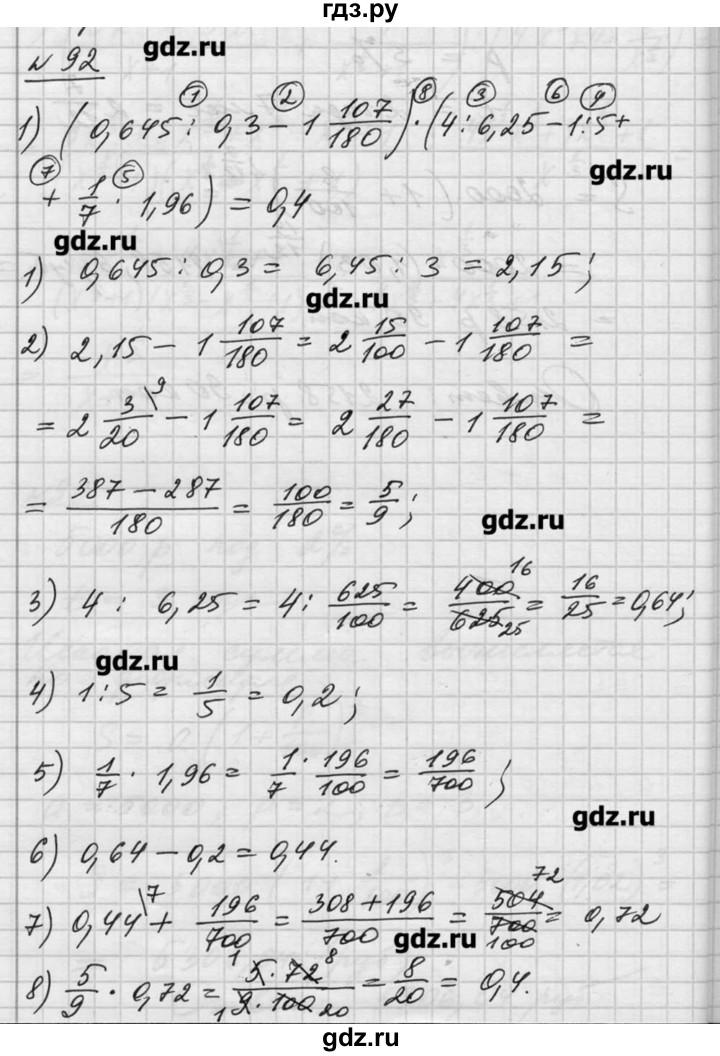 гдз.ру
gdz.ru
№ 92
① ② ⑧ ③ ⑥ ④
1) (0,645 : 0,3 − 1 107/180) · (4 : 6,25 − 1 : 5 +
⑦ ⑤
+ 1/7 · 1,96) = 0,4
gdz.ru
gdz.ru
1) 0,645 : 0,3 = 6,45 : 3 = 2,15;
gdz.ru
2) 2,15 − 1 107/180 = 2 15/100 − 1 107/180 =
= 2 3/20 \9 − 1 107/180 = 2 27/180 − 1 107/180 =
= (387 − 287)/180 = 100/180 = 5/9;
gdz.ru
3) 4 : 6,25 = 4 : 625/100 = 400 16/625 25 = 16/25 = 0,64;
gdz.ru
4) 1 : 5 = 1/5 = 0,2;
5) 1/7 · 1,96 = 1/7 · 196/100 = 196/700;
gdz.ru
6) 0,64 − 0,2 = 0,44.
7) 0,44 \7 + 196/700 = (308 + 196)/700 = 504 72/700 100 = 0,72
gdz.ru
8) 5/9 · 0,72 = 1 5 · 72 8/1 9 · 100 20 = 8/20 = 0,4.
gdz.ru